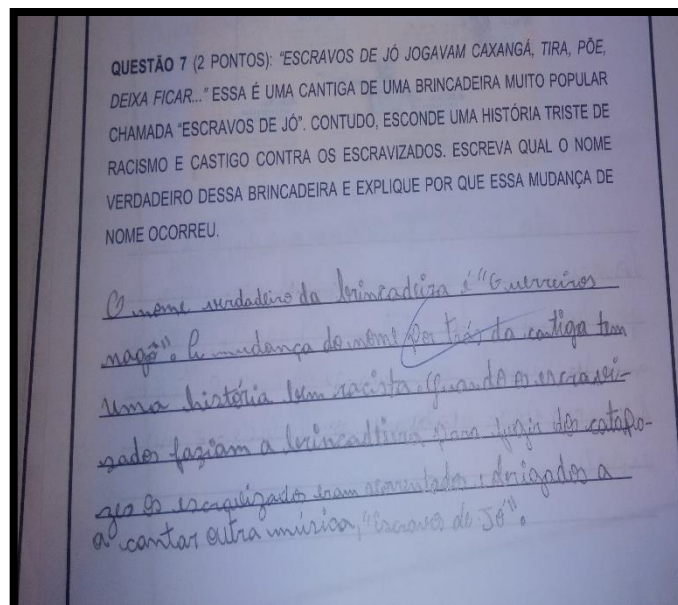 QUESTÃO 7 (2 PONTOS): "ESCRAVOS DE JÓ JOGAVAM CAXANGÁ, TIRA, PÕE,
DEIXA FICAR..." ESSA É UMA CANTIGA DE UMA BRINCADEIRA MUITO POPULAR
CHAMADA "ESCRAVOS DE JÓ". CONTUDO, ESCONDE UMA HISTÓRIA TRISTE DE
RACISMO E CASTIGO CONTRA OS ESCRAVIZADOS. ESCREVA QUAL O NOME
VERDADEIRO DESSA BRINCADEIRA E EXPLIQUE POR QUE ESSA MUDANÇA DE
NOME OCORREU.
O nome verdadeiro da brincadeira é "Guerreiros
nagô". A mudança do nome por trás da cantiga tem
uma história bem racista. Quando os escravi-
zados faziam a brincadeira para fugir dos
os escravizados eram e obrigados a
a cantar outra música, "Escravos de Jó".